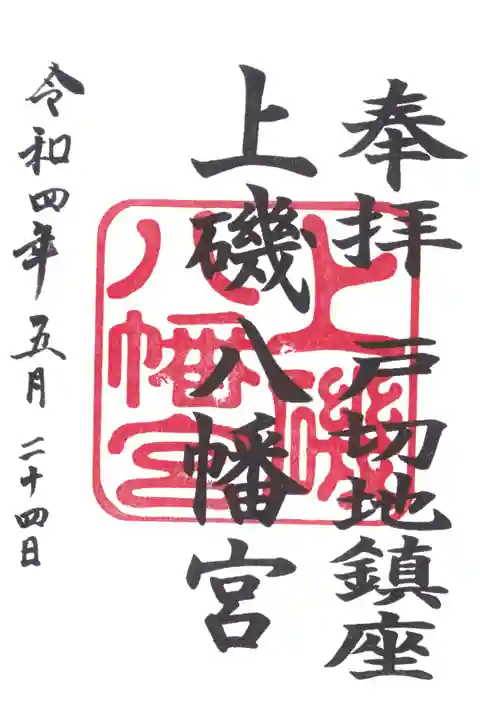 奉拝 戸切地鎮座
上磯八幡宮
上磯
八幡宮
令和四年五月二十四日